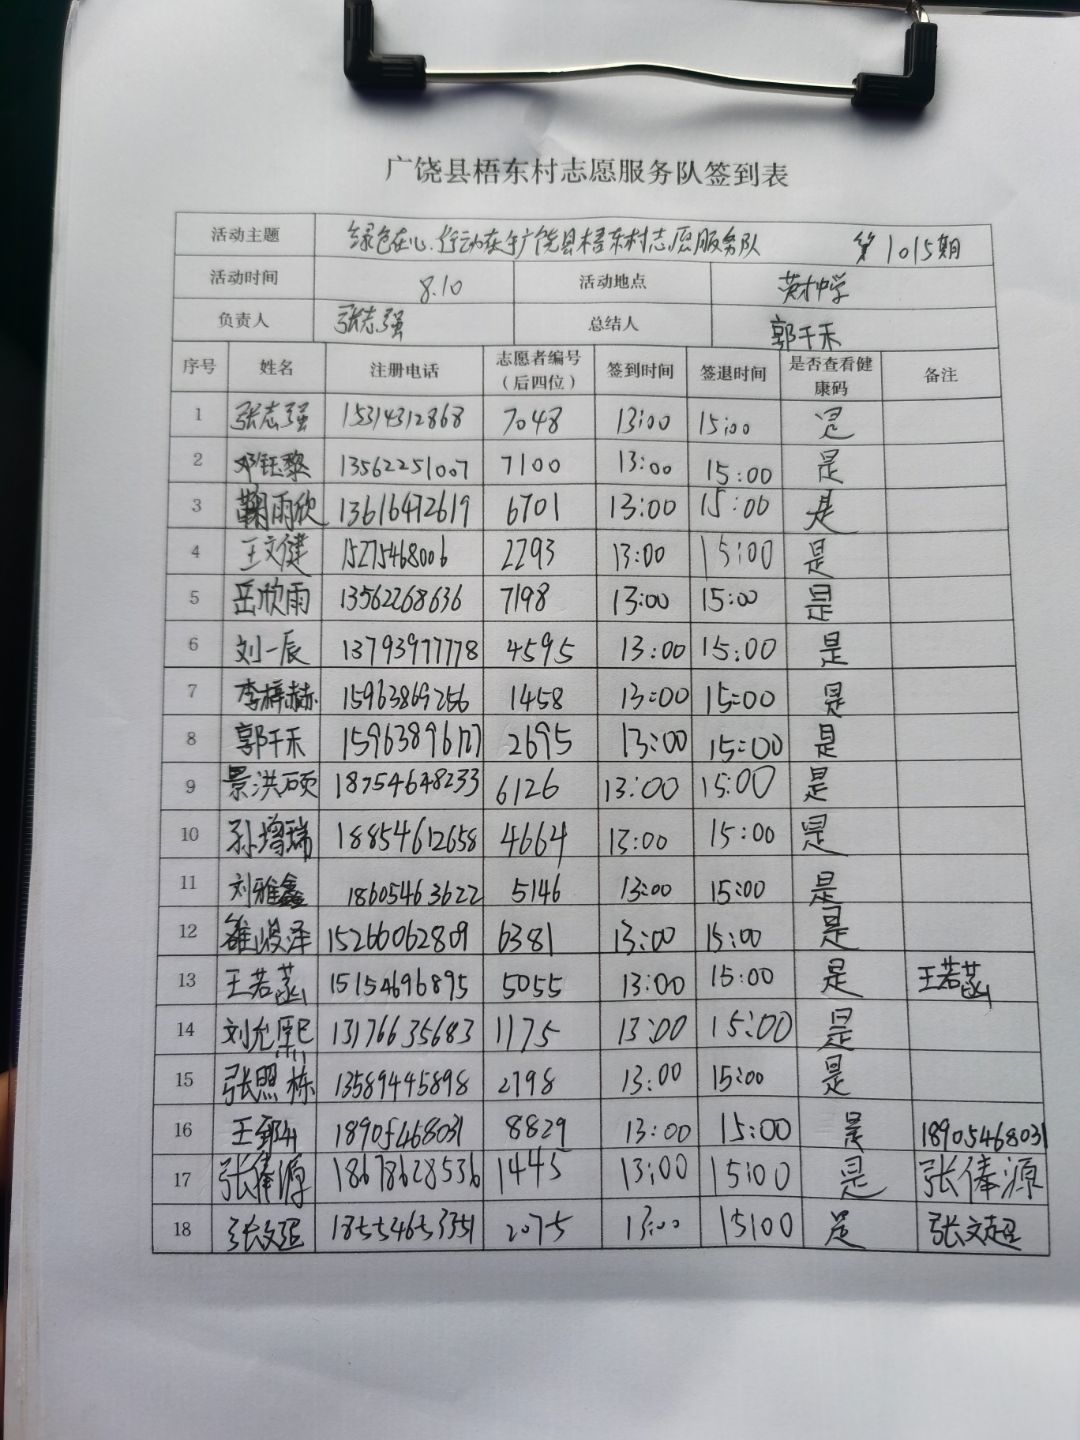 广饶县梧东村志愿服务队签到表
活动主题 绿色在心.行动在手广饶县梧东村志愿服务队 第1015期
活动时间 8.10 活动地点 英才中学
负责人 张志强 总结人 郭千禾
序号 姓名 注册电话 志愿者编号（后四位） 签到时间 签退时间 是否查看健康码 备注
1 张志强 15314312868 7048 13:00 15:00 是
2 邓钰黎 13562251007 7100 13:00 15:00 是
3 鞠雨欣 13616472619 6701 13:00 15:00 是
4 王文健 15275468006 2293 13:00 15:00 是
5 岳欣雨 13562268636 7198 13:00 15:00 是
6 刘一辰 13793977778 4595 13:00 15:00 是
7 李梓赫 15963869256 1458 13:00 15:00 是
8 郭千禾 2695 13:00 15:00 是
9 景洪硕 18754648233 6126 13:00 15:00 是
10 孙增瑞 18854612658 4664 13:00 15:00 是
11 刘雅鑫 18605463622 5146 13:00 15:00 是
12 雒峻泽 15266062809 6381 13:00 15:00 是
13 王若菡 15154696895 5055 13:00 15:00 是 王若菡
14 刘允熙 13176635683 1175 13:00 15:00 是
15 张照栋 13589445898 2798 13:00 15:00 是
16 18905468031 8829 13:00 15:00 是 18905468031
17 张俸源 18678628536 1445 13:00 15:00 是 张俸源
18 张文超 18554653351 2075 13:00 15:00 是 张文超